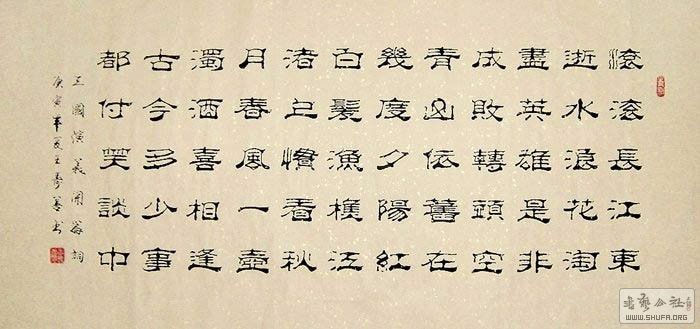 滾滾長江東
逝水浪花淘
盡英雄是非
成敗轉頭空
青山依舊在
幾度夕陽紅
白髮漁樵江
渚上慣看秋
月春風一壺
濁酒喜相逢
古今多少事
都付笑談中
三國演義開篇詞
庚寅年夏王壽善书
书艺公社
WWW.SHUFA.ORG